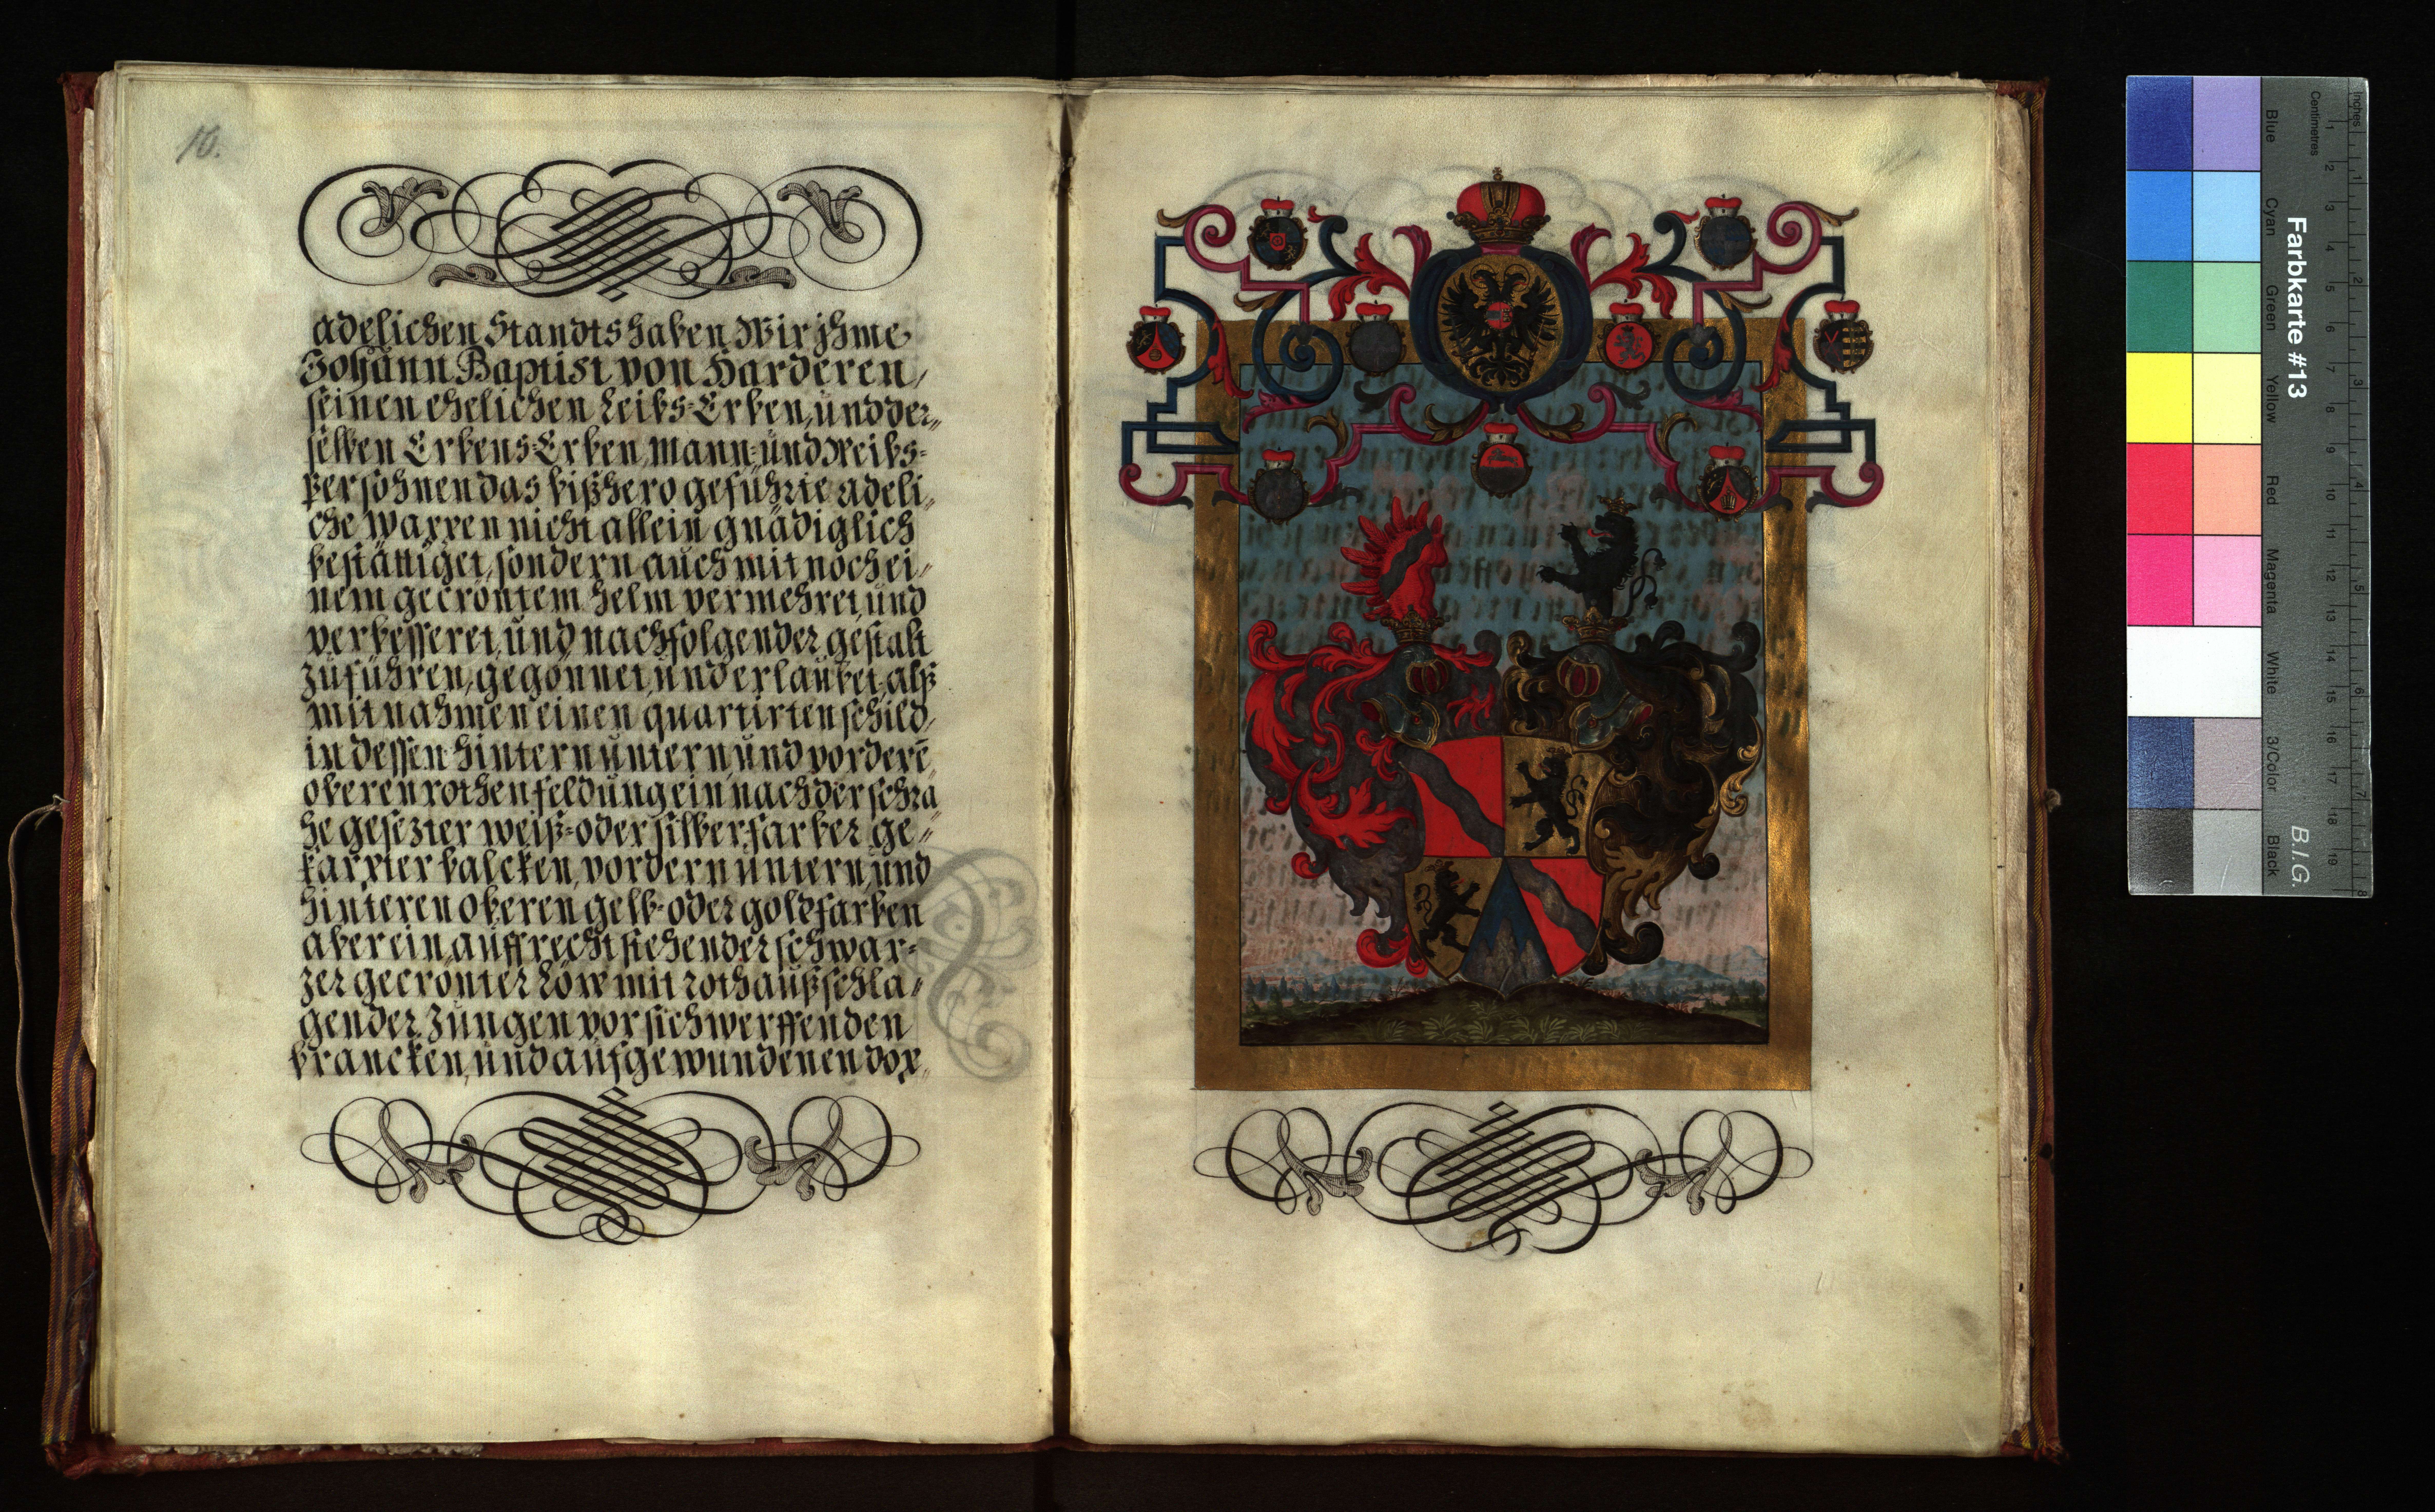 10.
adelichen Standts haben Wir jhme
Johann Baptist von Harderen,
seinen ehelichen Leibs-Erben, und der-
selben Erbens-Erben, Mann- und Weibs-
Persohnen das bißhero geführte adeli-
che Wappen nicht allein gnädiglich
bestättiget, sondern auch mit noch ei-
nem gecröntem Helm vermehret, und
verbesseret, und nachfolgender gestalt
zuführen, gegönnet, und erlaubet, alß
mit nahmen einen quartirten schild,
in dessen hintern untern, und vorderē
oberen rothen feldung ein nach der schrä-
he gesezter weiß- oder silberfarber ge-
karpter balcken, vordern untern, und
hinteren oberen gelb- oder goldfarben
aber ein auffrecht stehender schwar-
zer gecrönter Löw mit roth außschla-
gender Zungen vorsich werffenden
brancken, und aufgewundenen dop-
Farbkarte #13
B.I.G.
Blue
Cyan
Green
Yellow
Red
Magenta
White
3/Color
Black
Inches
1
2
3
4
5
6
7
8
Centimetres
1
2
3
4
5
6
7
8
9
10
11
12
13
14
15
16
17
18
19